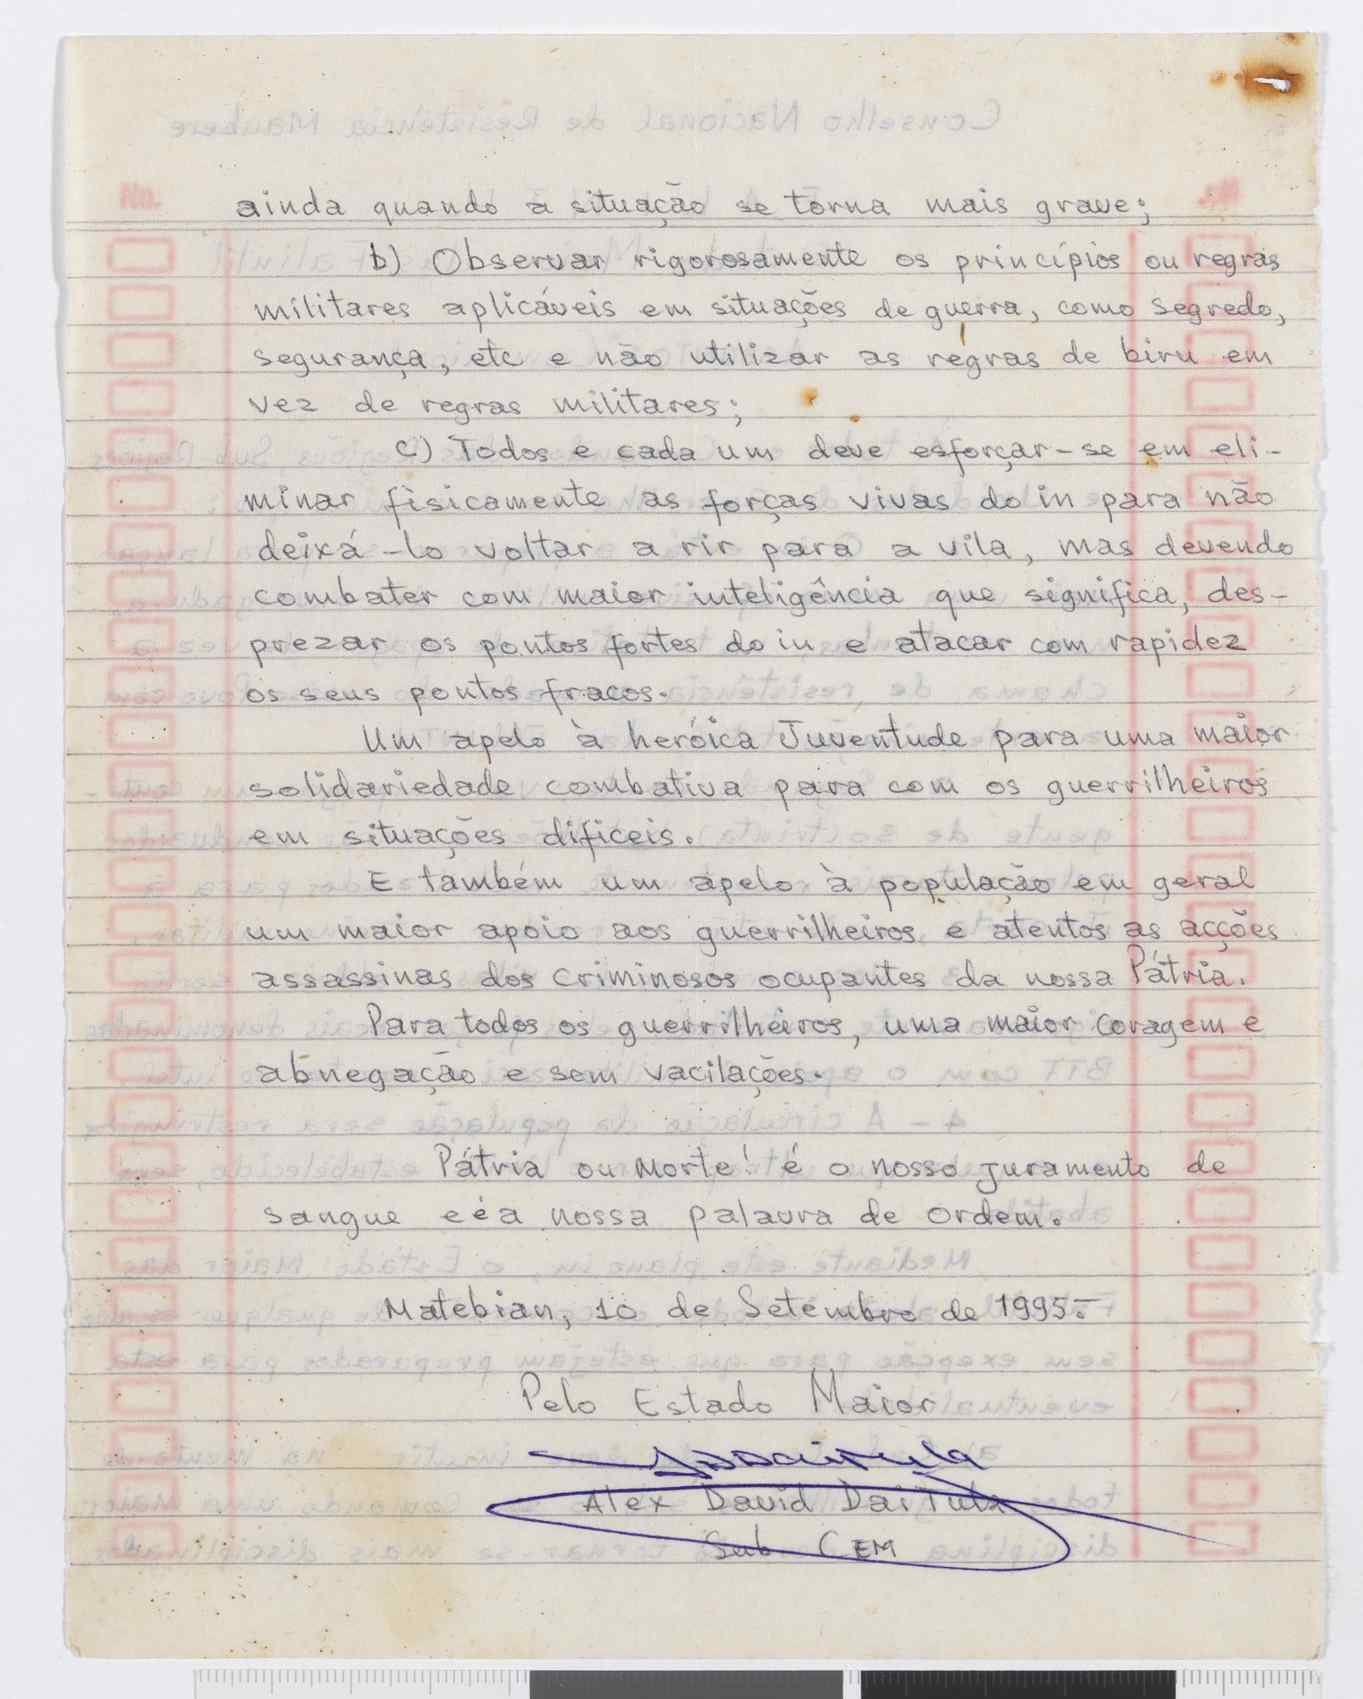 ainda quando a situação se torna mais grave;
b) Observar rigorosamente os princípios ou regras
militares aplicáveis em situações de guerra, como segredo,
segurança, etc e não utilizar as regras de biru em
vez de regras militares;
c) Todos e cada um deve esforçar-se em eli-
minar fisicamente as forças vivas do in para não
deixá-lo voltar a rir para a vila, mas devendo
combater com maior inteligência que significa, des-
prezar os pontos fortes do in e atacar com rapidez
os seus pontos fracos.
Um apelo à heróica Juventude para uma maior
solidariedade combativa para com os guerrilheiros
em situações dificeis.
E também um apelo à população em geral
um maior apoio aos guerrilheiros e atentos as acções
assassinas dos criminosos ocupantes da nossa Pátria.
Para todos os guerrilheiros, uma maior coragem e
abnegação e sem vacilações.
Pátria ou Morte! é o nosso juramento de
sangue e é a nossa palavra de ordem.
Matebian, 10 de Setembro de 1995.-
Pelo Estado Maior
Alex David DaiTula
Sub CEM